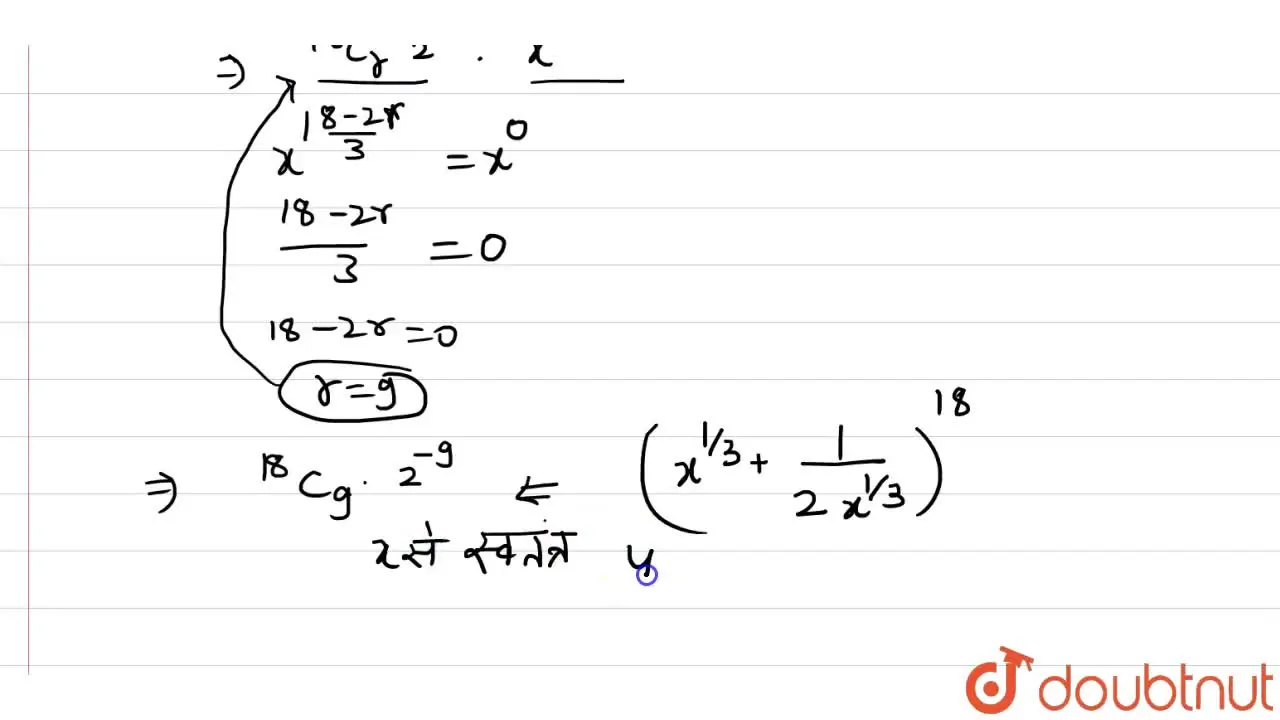 ⇒ ¹⁸Cᵣ 2 · x
x^((18-2r)/3) = x^0
(18-2r)/3 = 0
18-2r=0
r=9
⇒ ¹⁸C₉ · 2^-9 ⇐ (x^(1/3) + 1/(2x^(1/3)))^18
x से स्वतंत्र प
doubtnut